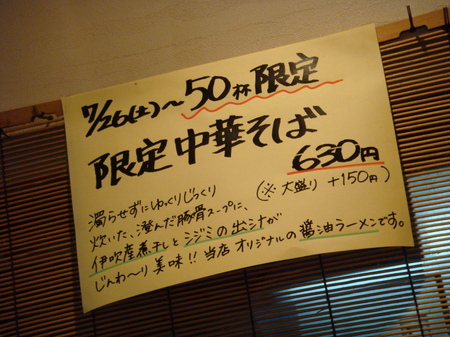 7/26(土)〜50杯限定
限定中華そば
630円
(※大盛り +150円)
濁らせずにゆっくりじっくり
炊いた、澄んだ豚骨スープに、
伊吹産煮干しとシジミの出シナが
じんわ〜り美味!!当店オリジナルの醤油ラーメンです。